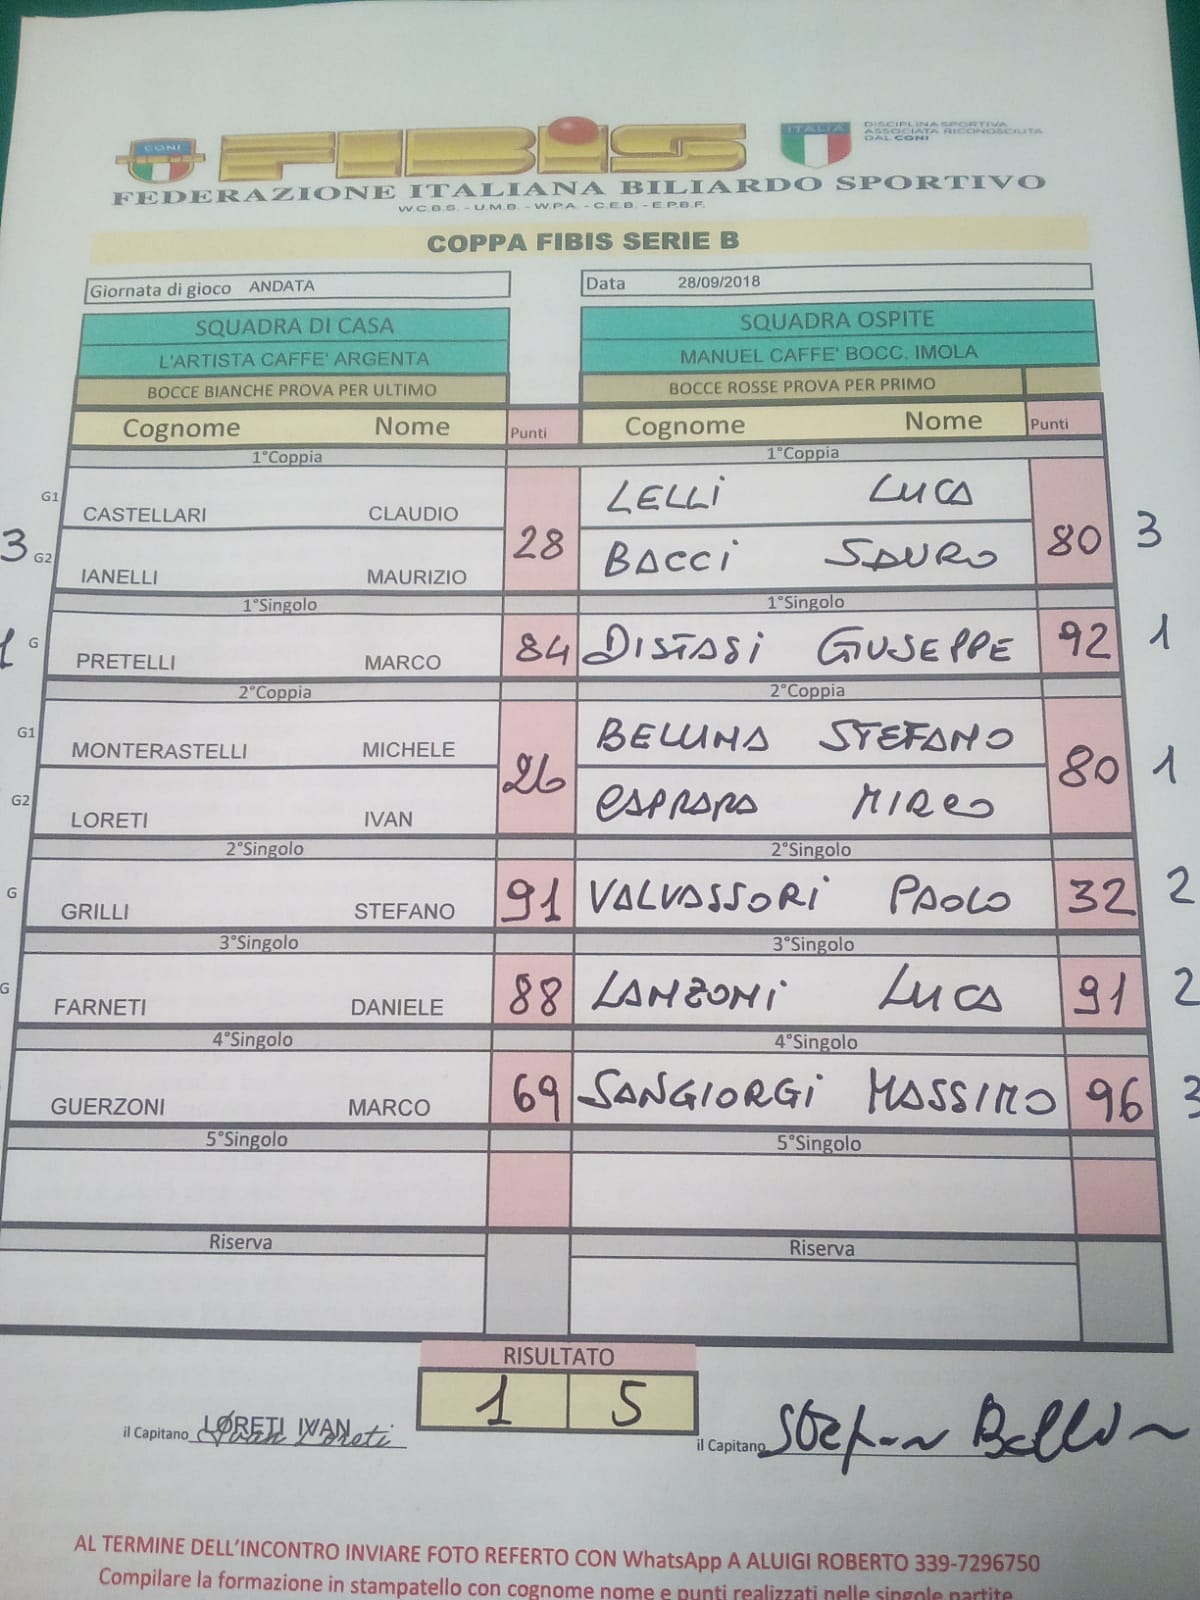 CONI
FIBIS
ITALIA
DISCIPLINA SPORTIVA
ASSOCIATA RICONOSCIUTA
DAL CONI
FEDERAZIONE ITALIANA BILIARDO SPORTIVO
W.C.B.S. - U.M.B. - W.P.A. - C.E.B. - E.P.B.F.
COPPA FIBIS SERIE B
Giornata di gioco ANDATA Data 28/09/2018
SQUADRA DI CASA SQUADRA OSPITE
L'ARTISTA CAFFE' ARGENTA MANUEL CAFFE' BOCC. IMOLA
BOCCE BIANCHE PROVA PER ULTIMO BOCCE ROSSE PROVA PER PRIMO
Cognome Nome Punti Cognome Nome Punti
1°Coppia 1°Coppia
G1 CASTELLARI CLAUDIO LELLI LUCA
3 28 80 3
G2 IANELLI MAURIZIO BACCI SAURO
1°Singolo 1°Singolo
1 G PRETELLI MARCO 84 DISTASI GIUSEPPE 92 1
2°Coppia 2°Coppia
G1 MONTERASTELLI MICHELE STEFANO
26 80 1
G2 LORETI IVAN CAPRARA MIRCO
2°Singolo 2°Singolo
G GRILLI STEFANO 91 VALVASSORI PAOLO 32 2
3°Singolo 3°Singolo
G FARNETI DANIELE 88 LANZONI LUCA 91 2
4°Singolo 4°Singolo
GUERZONI MARCO 69 SANGIORGI MASSIMO 96 3
5°Singolo 5°Singolo
Riserva Riserva
RISULTATO
1 5
il Capitano LORETI IVAN
Ivan Loreti
il Capitano Stefano
AL TERMINE DELL'INCONTRO INVIARE FOTO REFERTO CON WhatsApp A ALUIGI ROBERTO 339-7296750
Compilare la formazione in stampatello con cognome nome e punti realizzati nelle singole partite